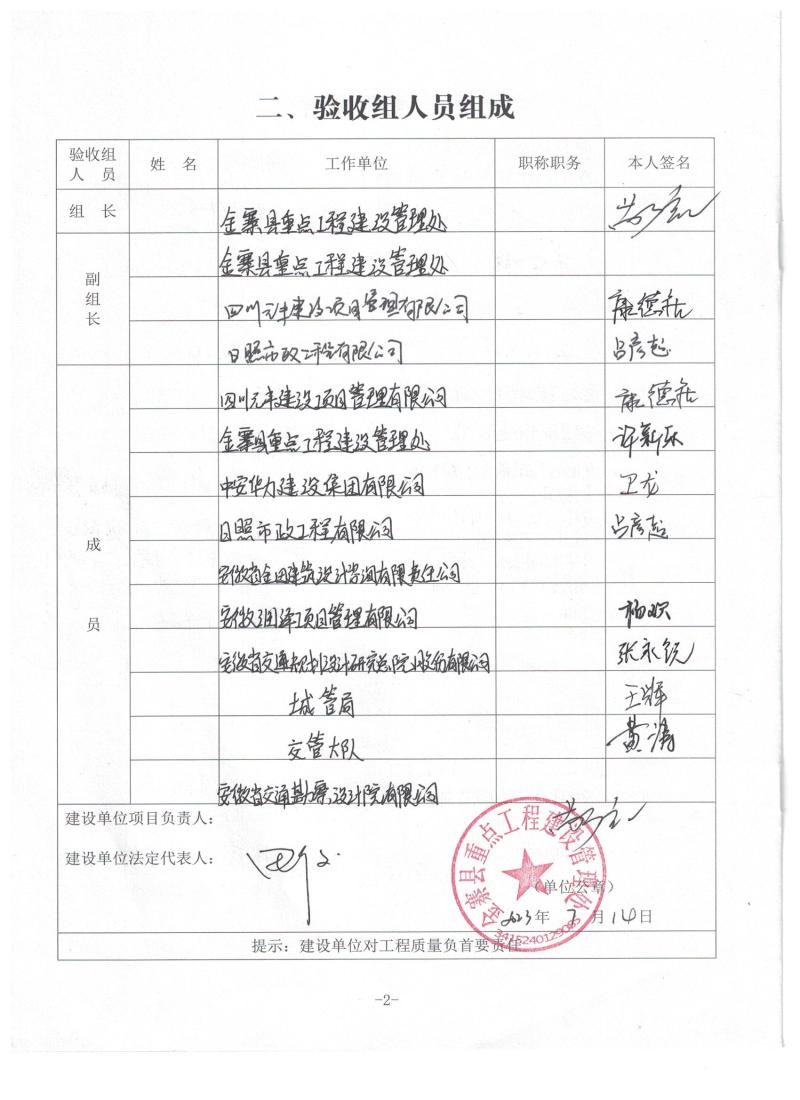 二、验收组人员组成
验收组人 员 姓 名 工作单位 职称职务 本人签名
组 长 金寨县重点工程建设管理处
副组长 金寨县重点工程建设管理处
四川元丰建设项目管理有限公司 康德
日照市政工程有限公司 吕彦起
成员 四川元丰建设项目管理有限公司 康德
金寨县重点工程建设管理处 许新
中安华力建设集团有限公司 卫龙
日照市政工程有限公司 吕彦起
安徽省金田建筑设计咨询有限责任公司
安徽 项目管理有限公司 杨欢
安徽省交通规划设计研究总院股份有限公司 张永锐
城管局 王辉
交管大队 黄涛
安徽省交通勘察设计院有限公司
建设单位项目负责人：
建设单位法定代表人：
金寨县重点工程建设管理处
（单位公章）
2023年 7月14日
3415240129085
提示：建设单位对工程质量负首要责任
-2-